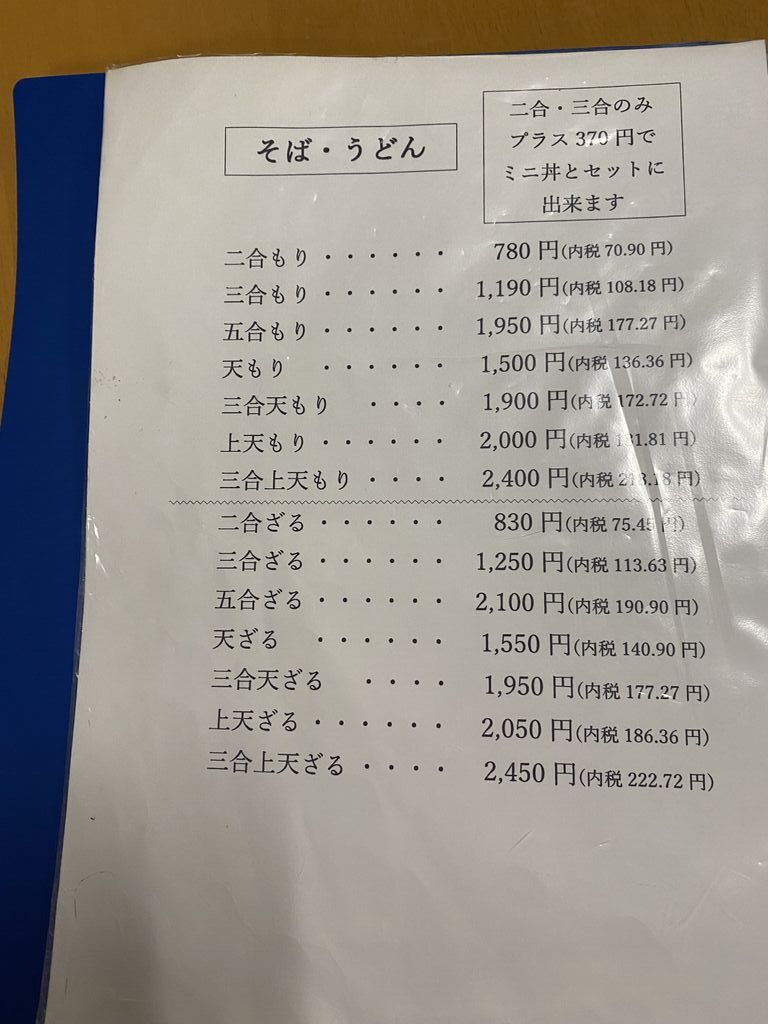 そば・うどん
二合・三合のみ
プラス 370 円で
ミニ丼とセットに
出来ます
二合もり ・・・・・・ 780 円(内税 70.90 円)
三合もり ・・・・・・ 1,190 円(内税 108.18 円)
五合もり ・・・・・・ 1,950 円(内税 177.27 円)
天もり ・・・・・・ 1,500 円(内税 136.36 円)
三合天もり ・・・・ 1,900 円(内税 172.72 円)
上天もり ・・・・・・ 2,000 円(内税 181.81 円)
三合上天もり ・・・・ 2,400 円(内税 218.18 円)
二合ざる ・・・・・・ 830 円(内税 75.45 円)
三合ざる ・・・・・・ 1,250 円(内税 113.63 円)
五合ざる ・・・・・・ 2,100 円(内税 190.90 円)
天ざる ・・・・・・ 1,550 円(内税 140.90 円)
三合天ざる ・・・・ 1,950 円(内税 177.27 円)
上天ざる ・・・・・・ 2,050 円(内税 186.36 円)
三合上天ざる ・・・・ 2,450 円(内税 222.72 円)